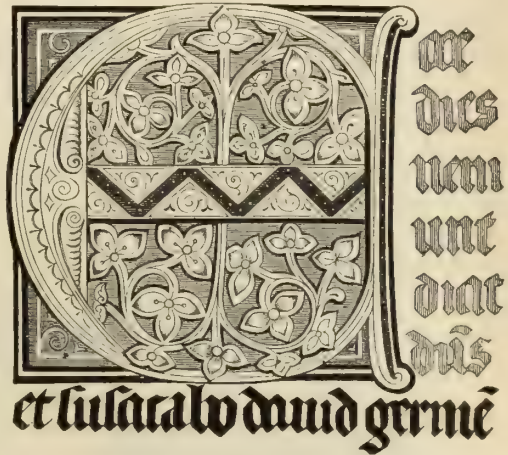 Ecce
dies
ueni
unt
dicit
dñs
et suscitabo dauid germē